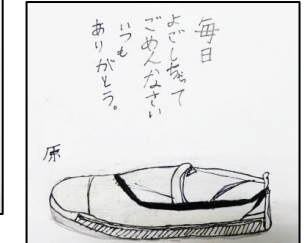 毎日
よごしちゃって
ごめんなさい
いつも
ありがとう。
原